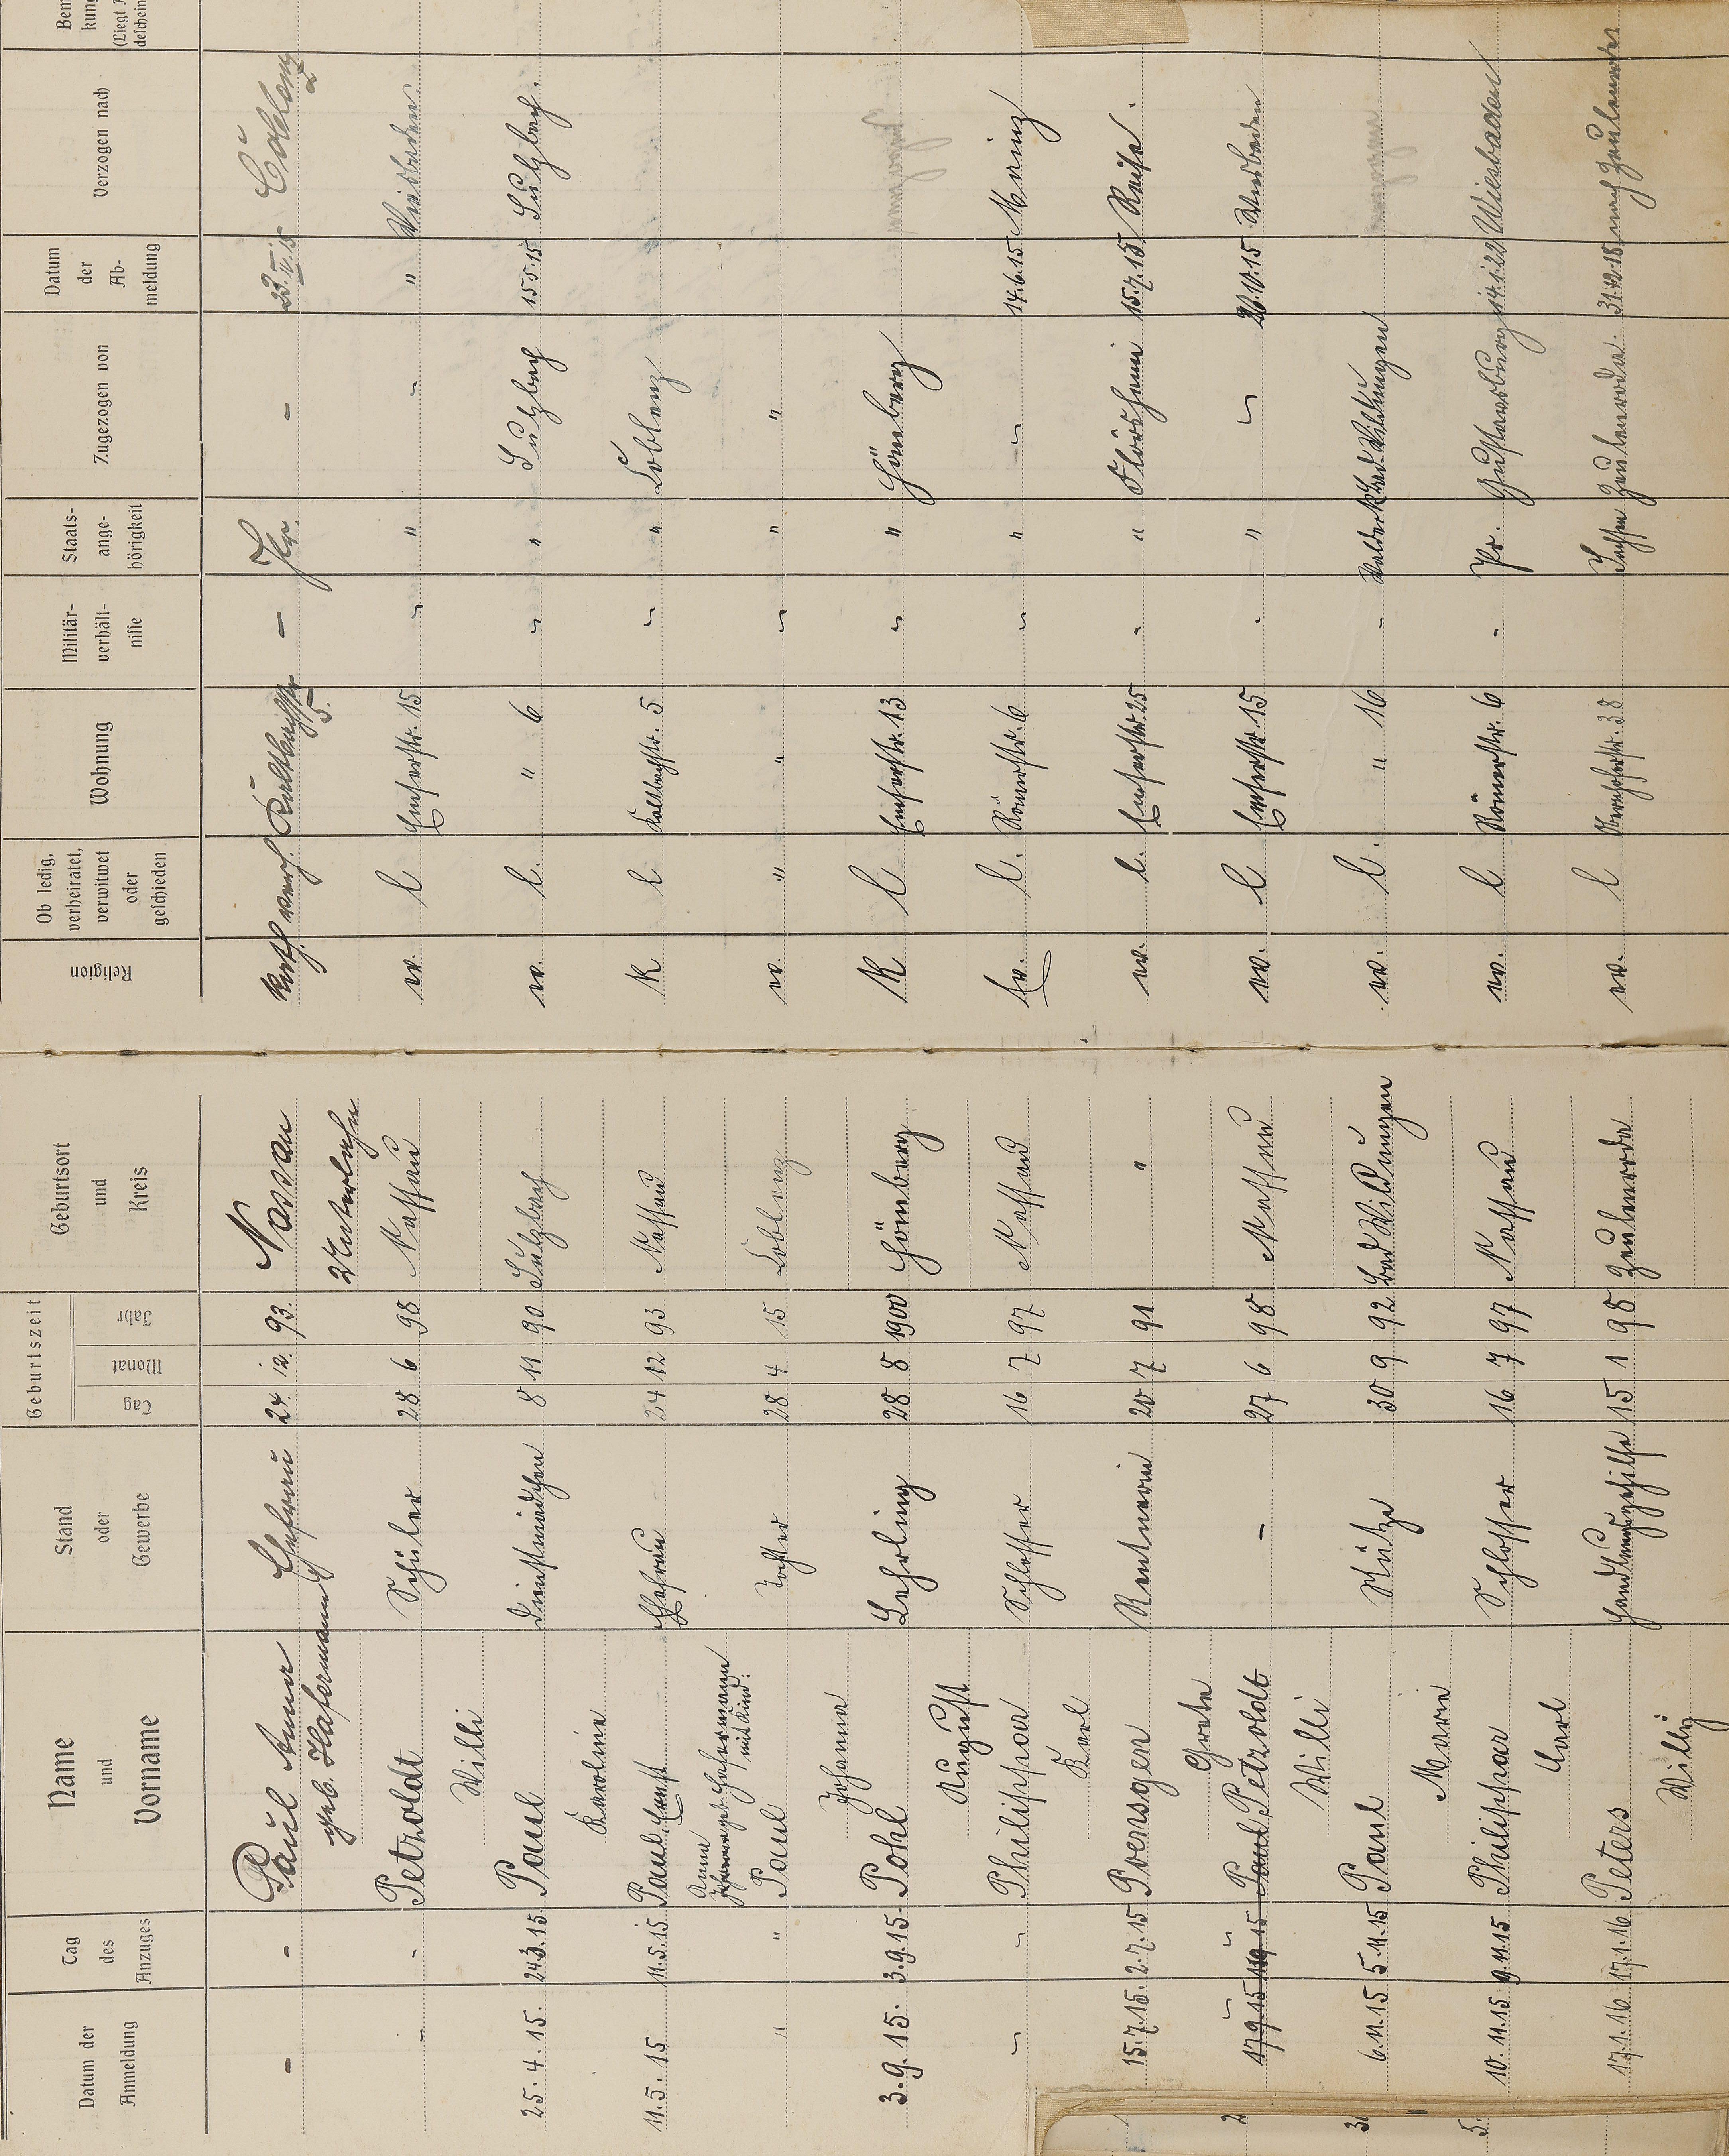 Datum der Anmeldung | Tag des Anzuges | Name und Vorname | Stand oder Gewerbe | Geburtszeit Tag Monat Jahr | Geburtsort und Kreis | Religion | Ob ledig, verheiratet, verwitwet oder geschieden | Wohnung | Militär-verhält-nisse | Staats-ange-hörigkeit | Zugezogen von | Datum der Ab-meldung | Verzogen nach
– – Paul Anna Ehefrau 24. 12. 93. Nassau kath. verh. Kaltbachstr – Pr. – 23.V.15 Coblenz
geb. Hafermann Unterlahn 5.
– – Petzoldt Schüler 28 6 98 Nassau ev. l Emserstr. 15 – " – " Wiesbaden
Willi
25.4.15. 24.3.15. Paul Dienstmädchen 8 11 90 Sulzbach ev. l. " 6 – " Sulzbach 15.5.15 Sulzbach.
Karoline
11.5.15 11.5.15 Paul, Ernst Ehefrau 24 12 93 Nassau K l Kaltbachstr. 5 – " Coblenz
Anna
geb. Hafermann
mit Kind.
" " Paul Tochter 28 4 15 Coblenz ev. " " – " "
Johanna
3.9.15. 3.9.15. Pohl Lehrling 28 8 1900 Hömberg K l Emserstr. 13 – " Hömberg
August
– – Philippar Schlosser 16 7 97 Nassau Ev. l. Römerstr. 6 – " – 14.6.15 Mainz
Karl
15.7.15. 2.7.15 Poensgen Rentnerin 20 7 91 " ev. l. Emserstr. 25 - " Flörsheim 15.7.15 Reise.
Grete
17.9.15 Paul Petzoldt – 27 6 98 Nassau ev. l Emserstr. 15 - " – 20.10.15 Wiesbaden
Willi
6.11.15 5.11.15 Paul Stütze 30 9 92 Bad Wildungen ev. l. " 16 - Waldeck Bad-Wildungen
Marie
10.11.15 9.11.15 Philippar Schlosser 16 7 97 Nassau ev. l Römerstr. 6 - Pr. Gustavsburg 14.1.20 Wiesbaden
Carl
17.1.16 17.1.16 Peters Handlungsgehilfe 15 1 98 Zeulenroda ev. l Obernhoferstr. 38 Sachsen Zeulenroda. 31.12.18 nach Zeulenroda
Willy